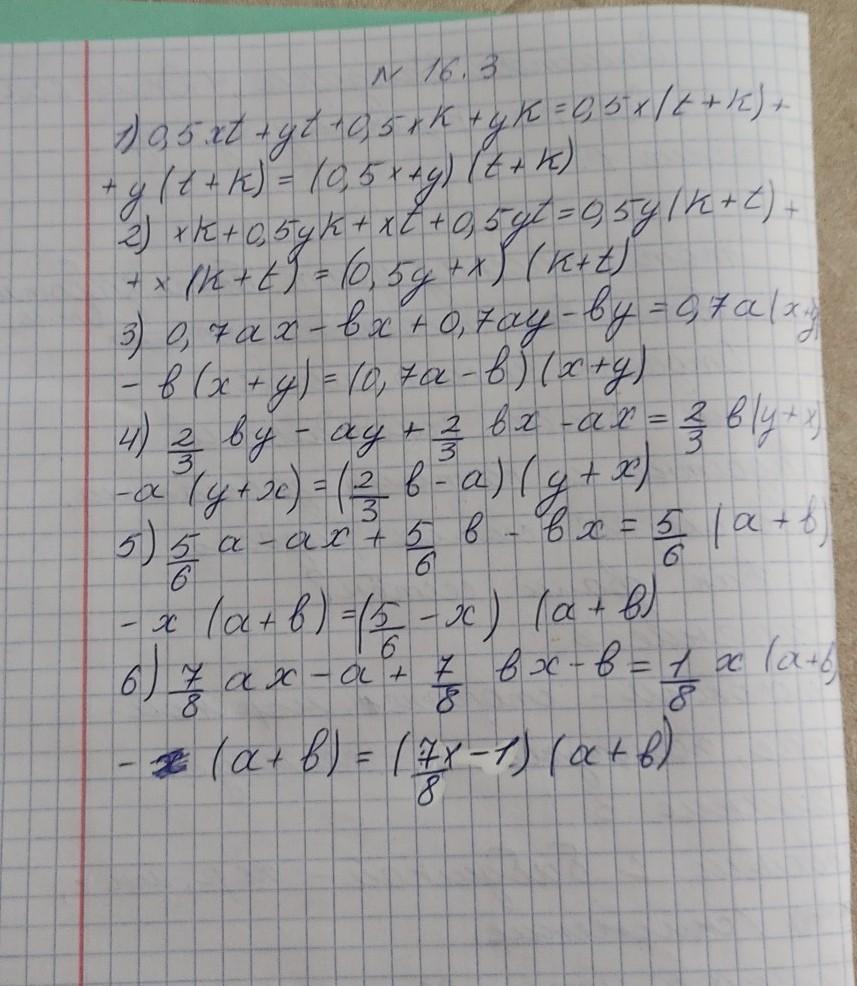 N 16.3
1) 0,5xt+yt+0,5xk+yk=0,5x(t+k)+
+y(t+k)=(0,5x+y)(t+k)
2) xk+0,5yk+xt+0,5yt=0,5y(k+t)+
+x(k+t)=(0,5y+x)(k+t)
3) 0,7ax-bx+0,7ay-by=0,7a(x+y)
-b(x+y)=(0,7a-b)(x+y)
4) 2/3 by-ay+2/3 bx-ax=2/3 b(y+x)
-a(y+x)=(2/3 b-a)(y+x)
5) 5/6 a-ax+5/6 b-bx=5/6 (a+b)
-x(a+b)=(5/6-x)(a+b)
6) 7/8 ax-a+7/8 bx-b=1/8 x(a+b)
-(a+b)=(7/8x-1)(a+b)